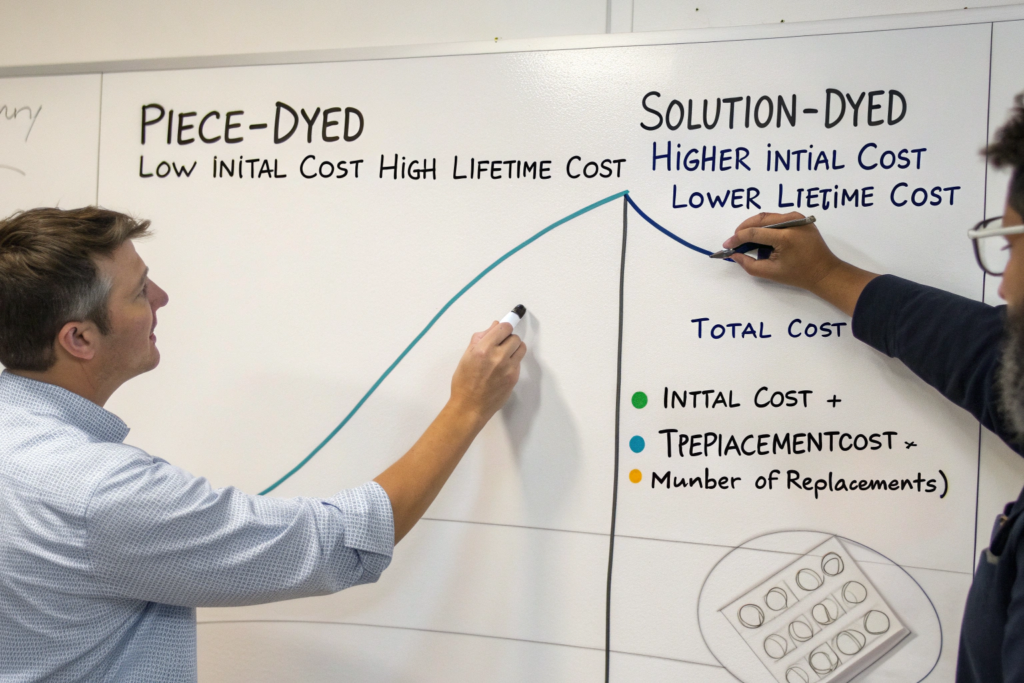 PIECE-DYED
LOW INITAL COST HIGH LIFETIME COST
SOLUTION-DYED
HIGHER INTIAL COST
LOWER LIETIME COST
TOTAL COST
INTTAL COST +
TPEPIACEMENTCOST ×
Munber of Replacements)